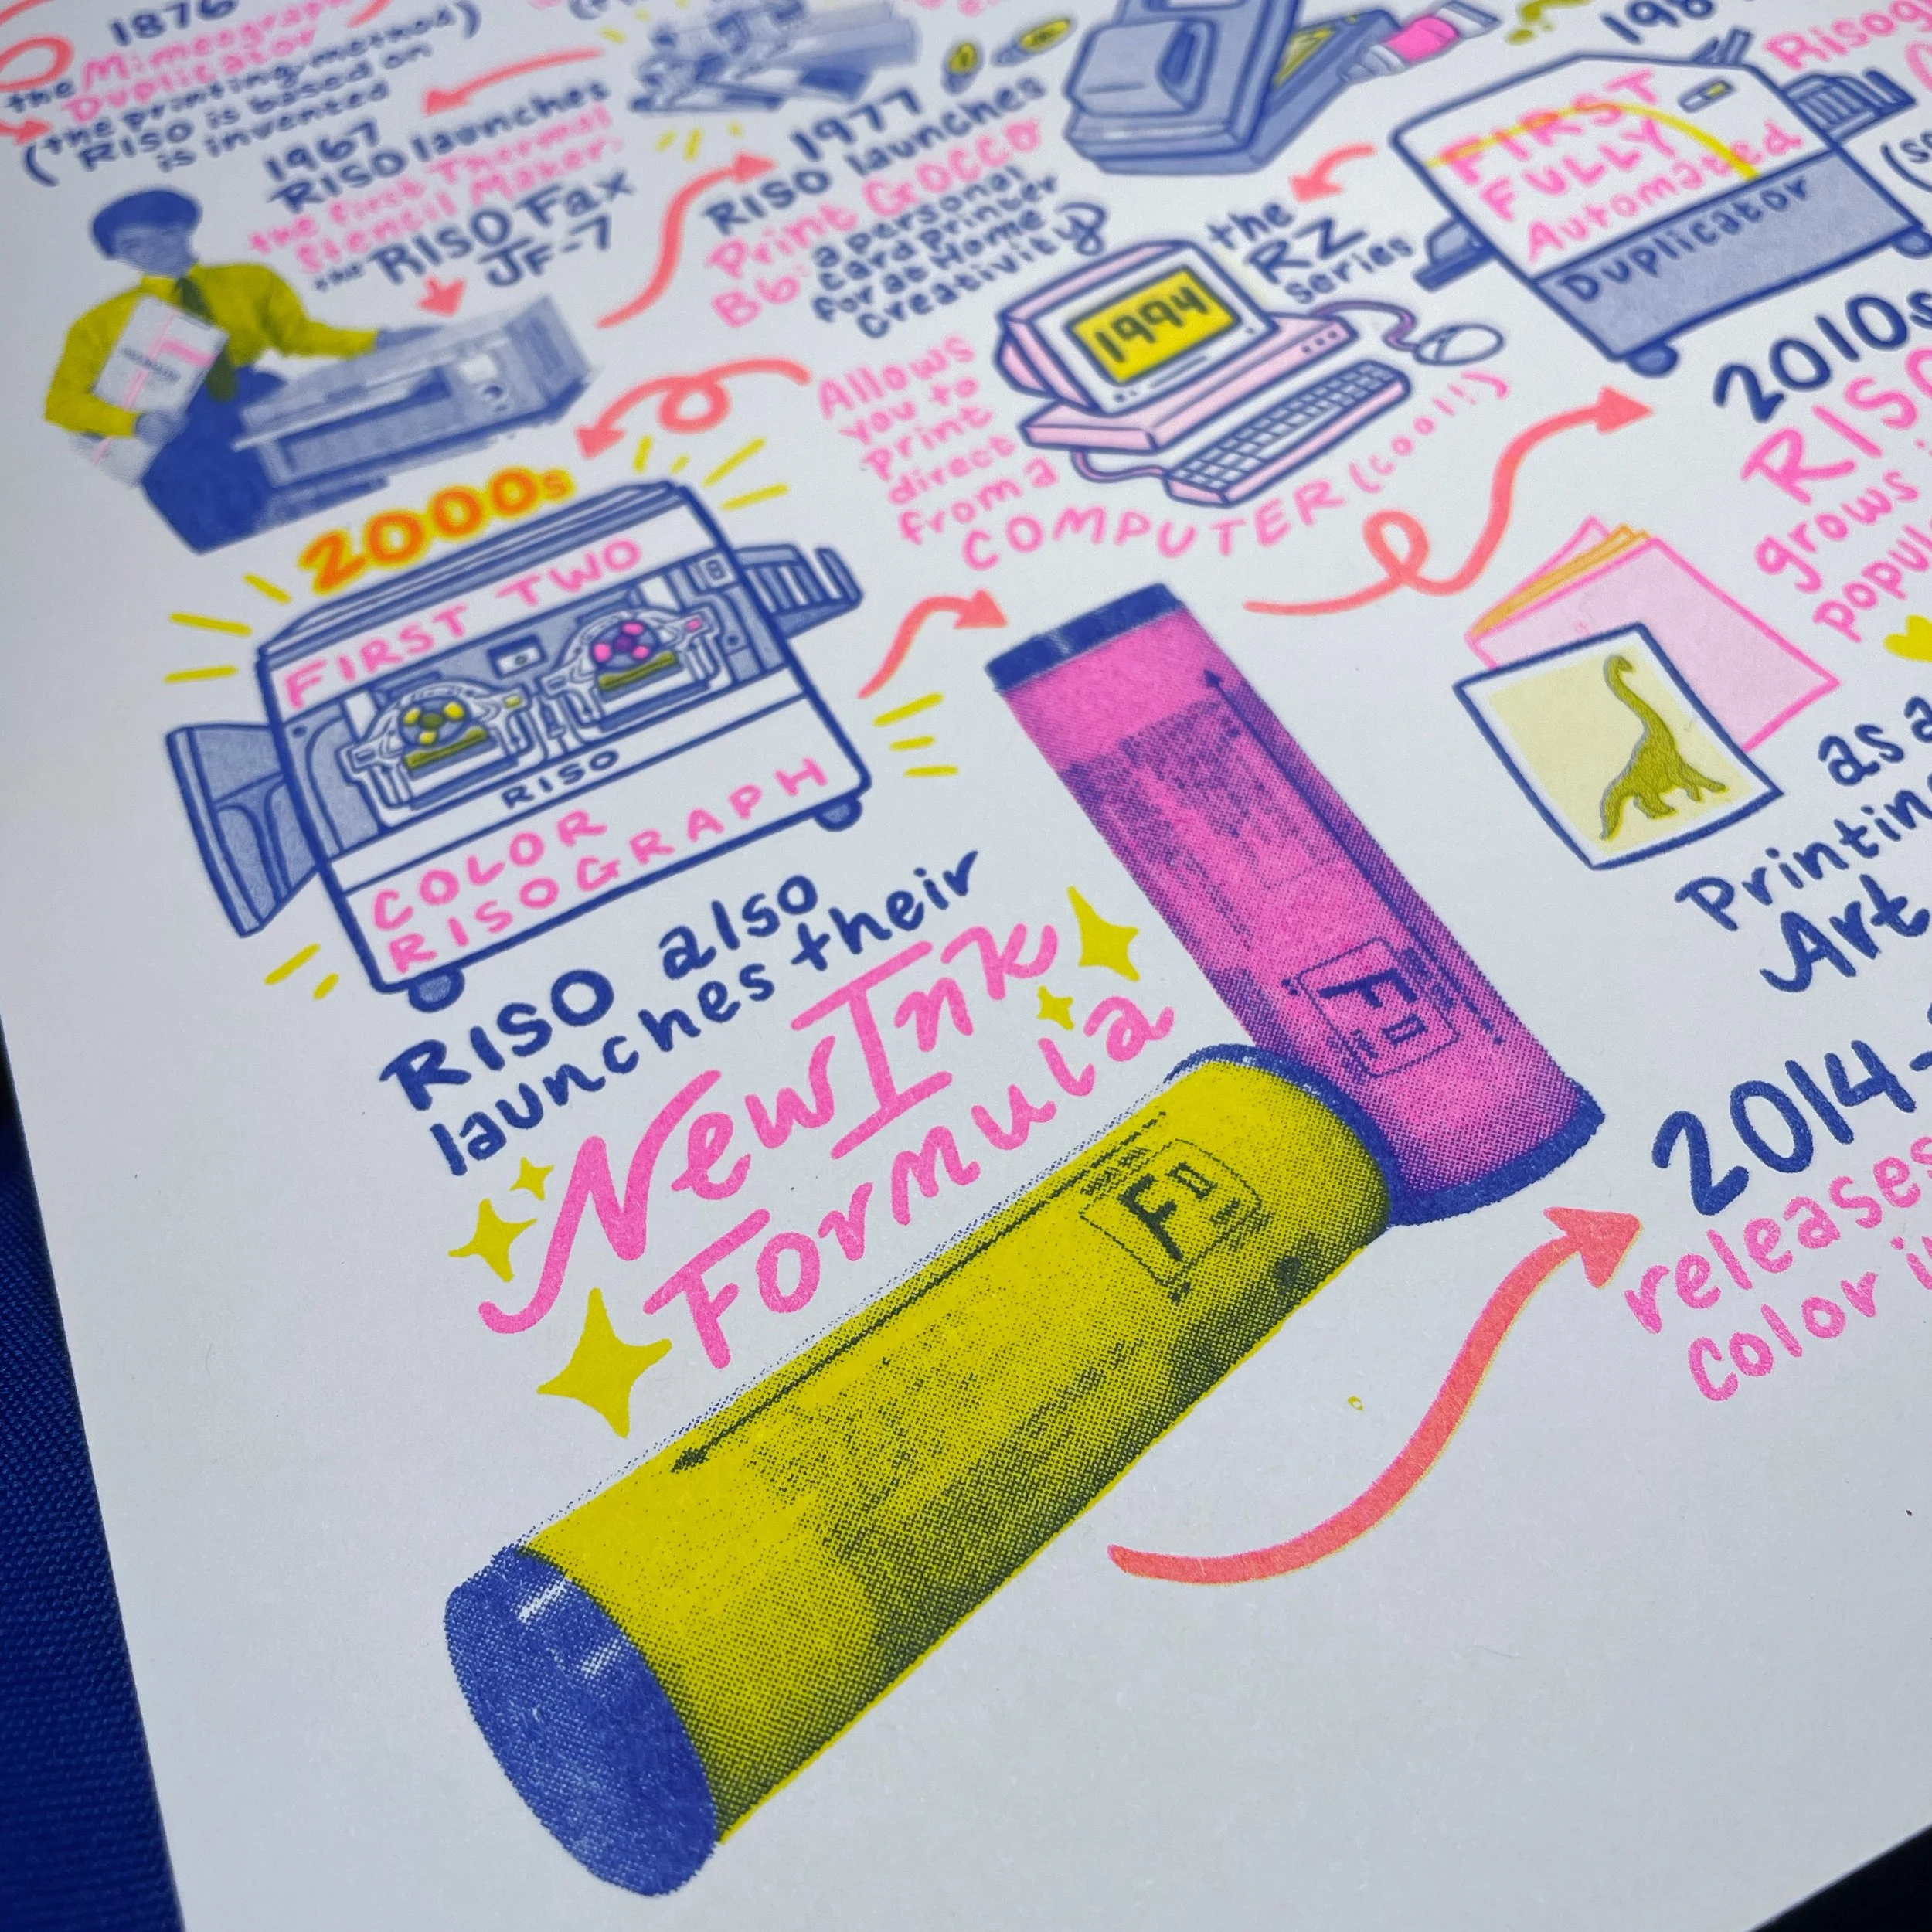 1876
the Mimeograph
Duplicator
(the printing method
RISO is based on)
is invented
1967
RISO launches
the first Thermal
Stencil Maker:
the RISO Fax
JF-7
1977
RISO launches
Print GOCCO
B6: a personal
card printer
for at Home
Creativity
FIRST
FULLY
Automated
Duplicator
the
RZ
series
1994
Allows
you to
print
direct
from a
COMPUTER (cool!)
2000s
FIRST TWO
RISO
COLOR
RISOGRAPH
RISO also
launches their
New Ink
Formula
F II
F II
2010s
RISO
grows
as a
Printing
Art
2014-
releases
color